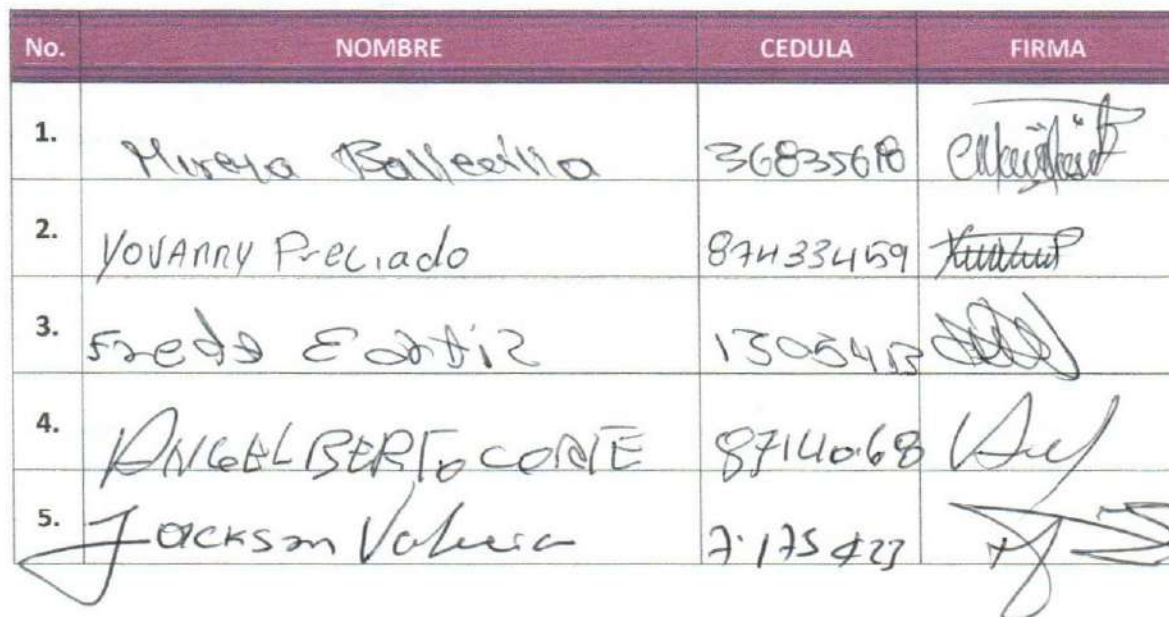 No. NOMBRE CEDULA FIRMA
1. Mireya Ballecilla 36835618
2. YOVANNY Preciado 87433459
3. Fredy E ortiz 1305413
4. ANGELBERTO CORTE 8714068
5. Jackson Valencia 7.175423